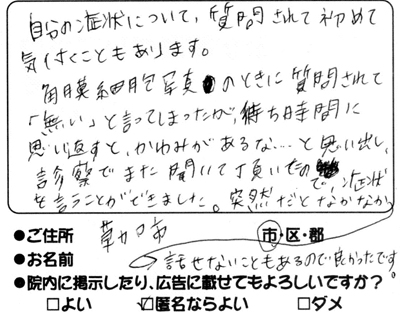 自分の症状について、質問されて初めて
気付くこともあります。
角膜細胞写真のときに質問されて
「無い」と言ってしまったが、待ち時間に
思い返すと、かわみがあるな…と思い出し、
診察でまた聞いて頂いたので、症状
を言うことができました。突然だとなかなか
●ご住所 草加市 市・区・郡
●お名前 話せないこともあるので良かったです。
●院内に掲示したり、広告に載せてもよろしいですか?
□よい ☑匿名ならよい □ダメ